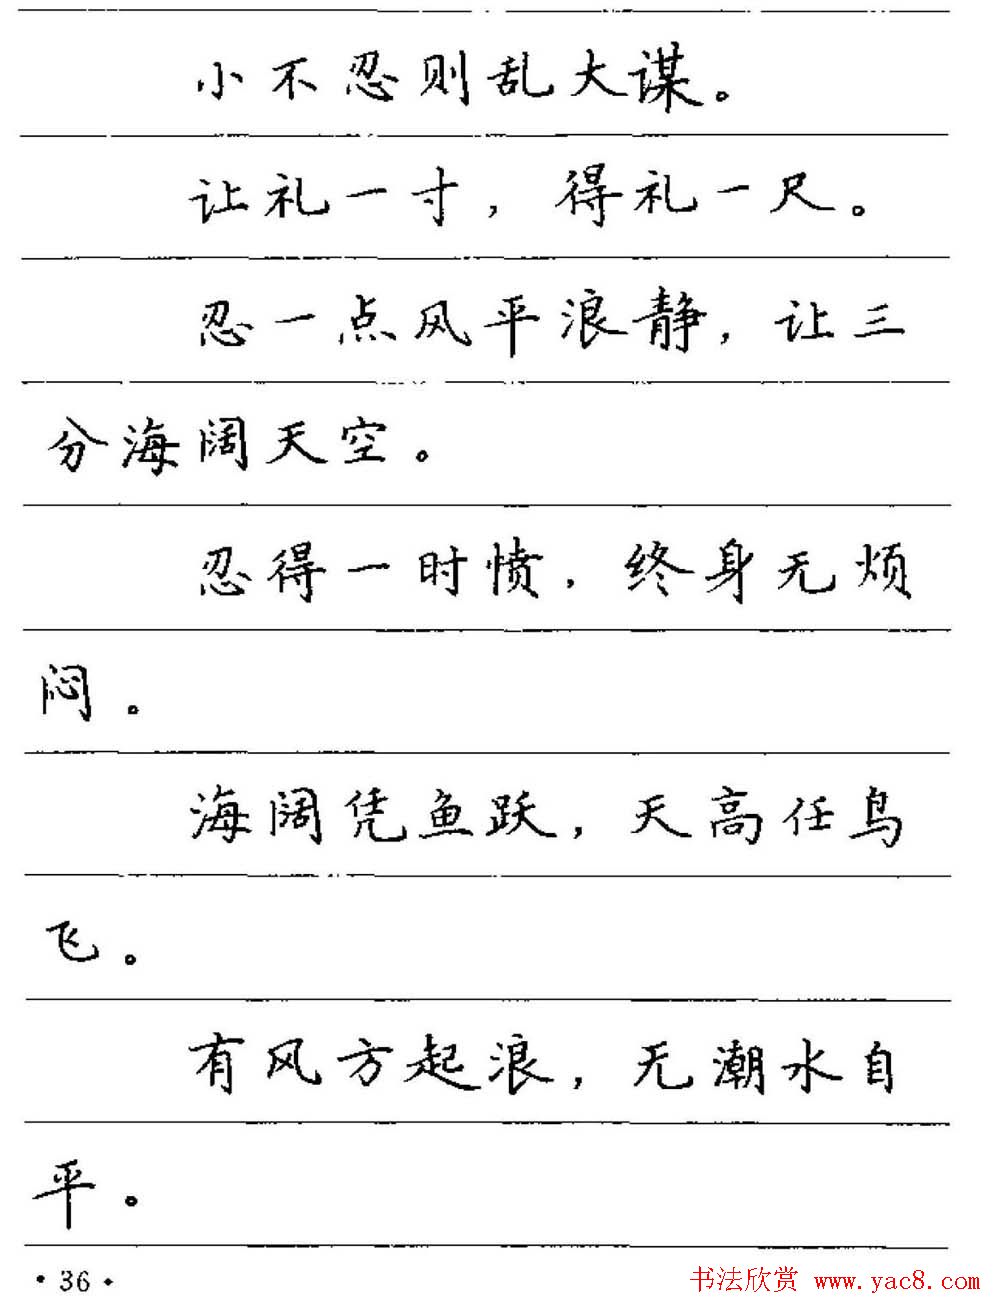 小不忍则乱大谋。
让礼一寸，得礼一尺。
忍一点风平浪静，让三
分海阔天空。
忍得一时愤，终身无烦
闷。
海阔凭鱼跃，天高任鸟
飞。
有风方起浪，无潮水自
平。
·36·
书法欣赏 www.yac8.com